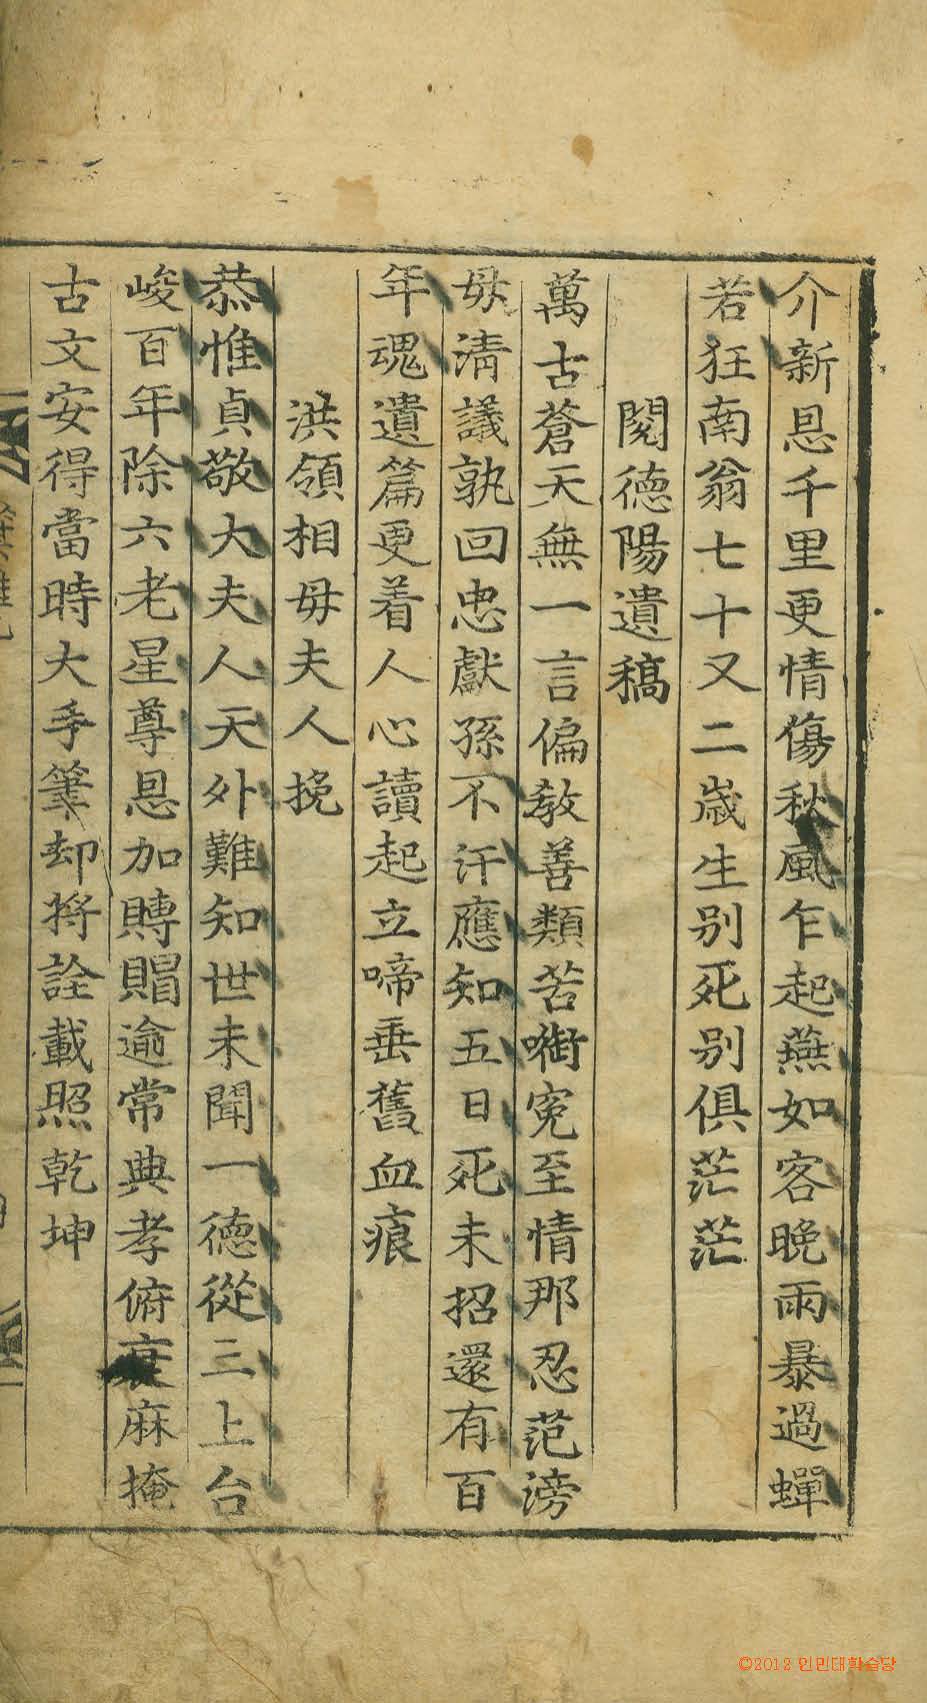 介新恩千里更情傷秋風乍起燕如客晚雨暴過蟬
若狂南翁七十又二歲生别死别俱茫茫
閱德陽遺稿
萬古蒼天無一言偏教善類苦啣寃至情那忍范滂
母清議孰回忠獻孫不汗應知五日死未招還有百
年魂遺篇更着人心讀起立啼垂舊血痕
洪領相母夫人挽
恭惟貞敬大夫人天外難知世未聞一德從三上台
峻百年除六老星尊恩加賻賵逾常典孝俯衰麻掩
古文安得當時大手筆却將詮載照乾坤
©2012 인민대학습당